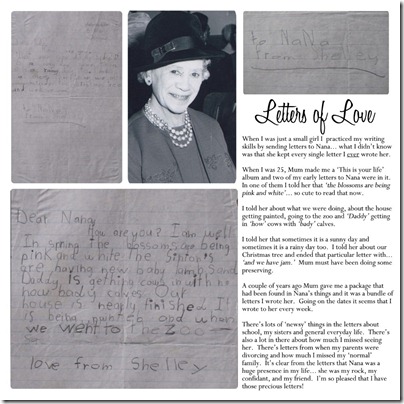 to NaNa
from Shelley
Letters of Love
When I was just a small girl I practiced my writing
skills by sending letters to Nana… what I didn't know
was that she kept every single letter I ever wrote her.
When I was 25, Mum made me a 'This is your life'
album and two of my early letters to Nana were in it.
In one of them I told her that 'the blossoms are being
pink and white'… so cute to read that now.
I told her about what we were doing, about the house
getting painted, going to the zoo and 'Daddy' getting
in 'how' cows with 'bady' calves.
I told her that sometimes it is a sunny day and
sometimes it is a rainy day too. I told her about our
Christmas tree and ended that particular letter with…
'and we have jam.' Mum must have been doing some
preserving.
A couple of years ago Mum gave me a package that
had been found in Nana's things and it was a bundle of
letters I wrote her. Going on the dates it seems that I
wrote to her every week.
There's lots of 'newsy' things in the letters about
school, my sisters and general everyday life. There's
also a lot in there about how much I missed seeing
her. There's letters from when my parents were
divorcing and how much I missed my 'normal'
family. It's clear from the letters that Nana was a
huge presence in my life… she was my rock, my
confidant, and my friend. I'm so pleased that I have
those precious letters!
Dear Nana
How are you? I am well
In spring the blossoms are being
pink and white the
are having new baby lambs and
Daddy is getting cows in with
how bady calves. Our
house is nearly finished I
is being painted and when
we went to the Zoo
love from Shelley